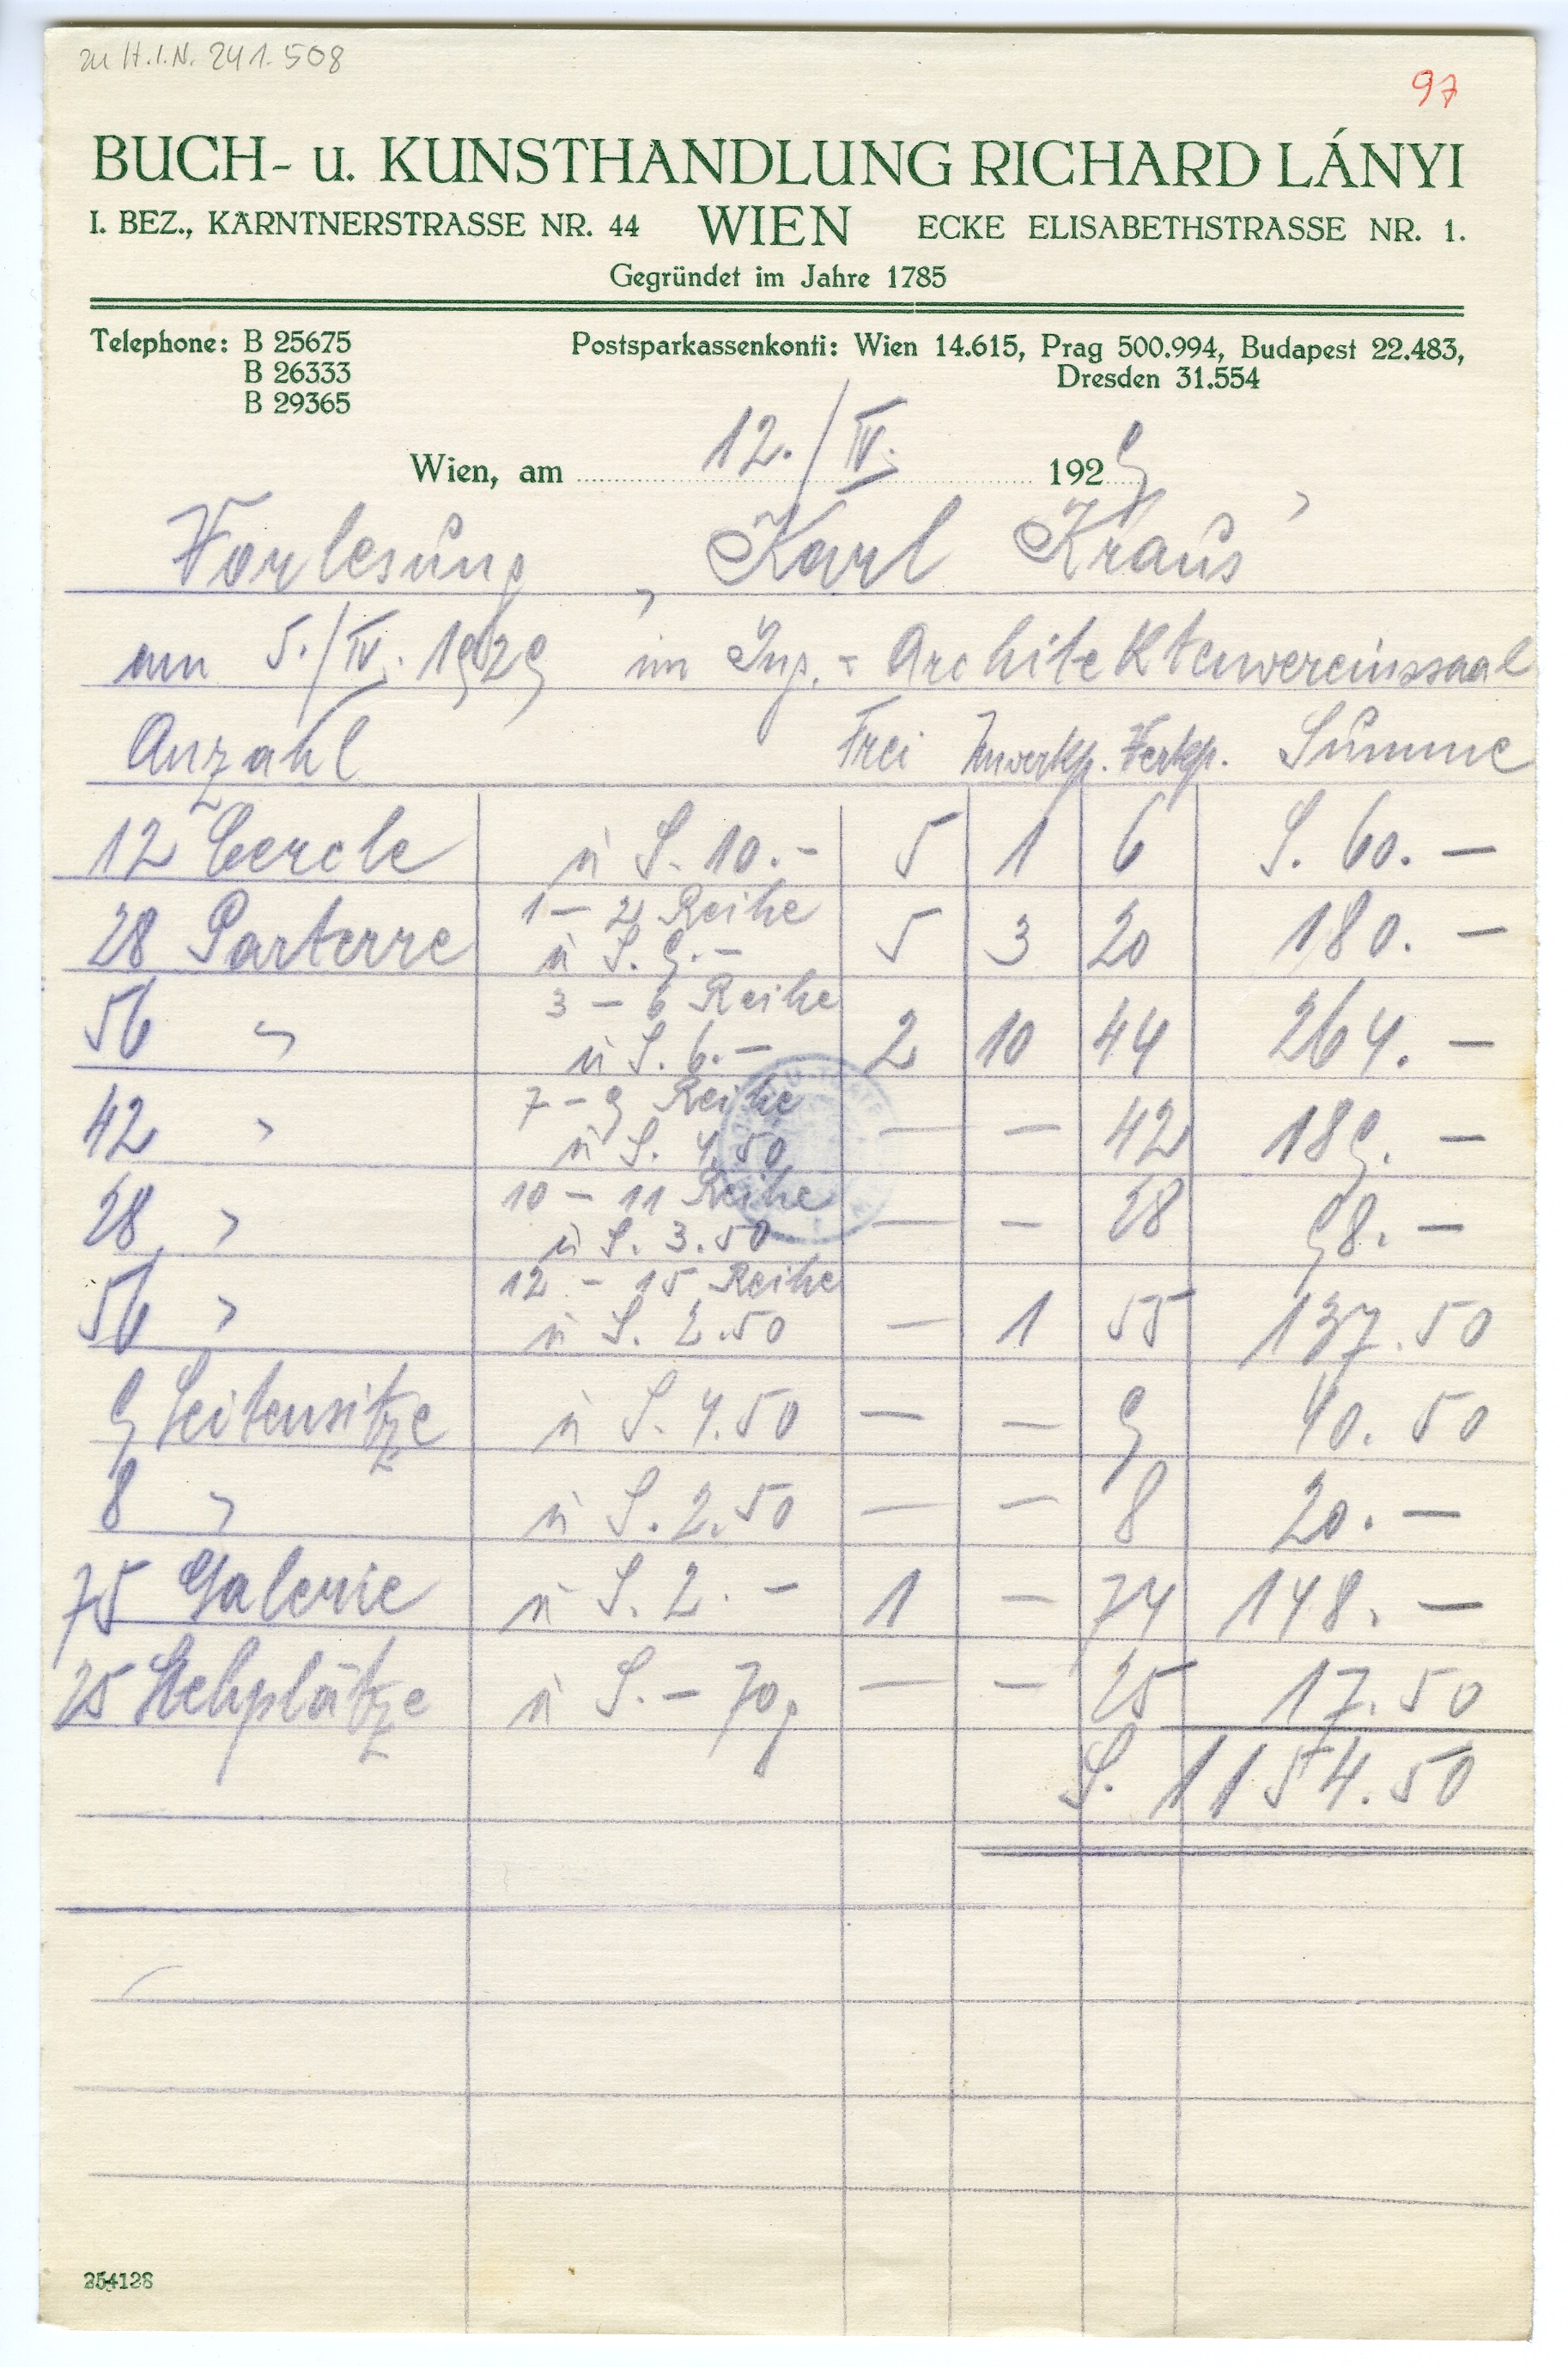 zu H.I.N. 241.508
97
BUCH- u. KUNSTHANDLUNG RICHARD LÁNYI
I. BEZ., KÄRNTNERSTRASSE NR. 44 WIEN ECKE ELISABETHSTRASSE NR. 1.
Gegründet im Jahre 1785
Telephone: B 25675
B 26333
B 29365
Postsparkassenkonti: Wien 14.615, Prag 500.994, Budapest 22.483,
Dresden 31.554
Wien, am 12./IV. 1929
Vorlesung „Karl Kraus"
am 5./IV. 1929 im Ing.- Architektenvereinssaal
Anzahl Frei Unverkp. Verkp. Summe
12 Cercle à S. 10.- 5 1 6 S. 60.—
28 Parterre 1 - 2 Reihe à S. 9.- 5 3 20 180.—
56 " 3 - 6 Reihe à S. 6.— 2 10 44 264.—
42 " 7 - 9 Reihe à S. 4.50 — — 42 189.—
28 " 10 - 11 Reihe à S. 3.50 — — 28 98.—
56 " 12 - 15 Reihe à S. 2.50 — 1 55 137.50
9 Seitensitze à S. 4.50 — — 9 40.50
8 " à S. 2.50 — — 8 20.—
75 Galerie à S. 2.- 1 — 74 148.—
25 Stehplätze à S. - 70g — — 25 17.50
S. 1154.50
254128